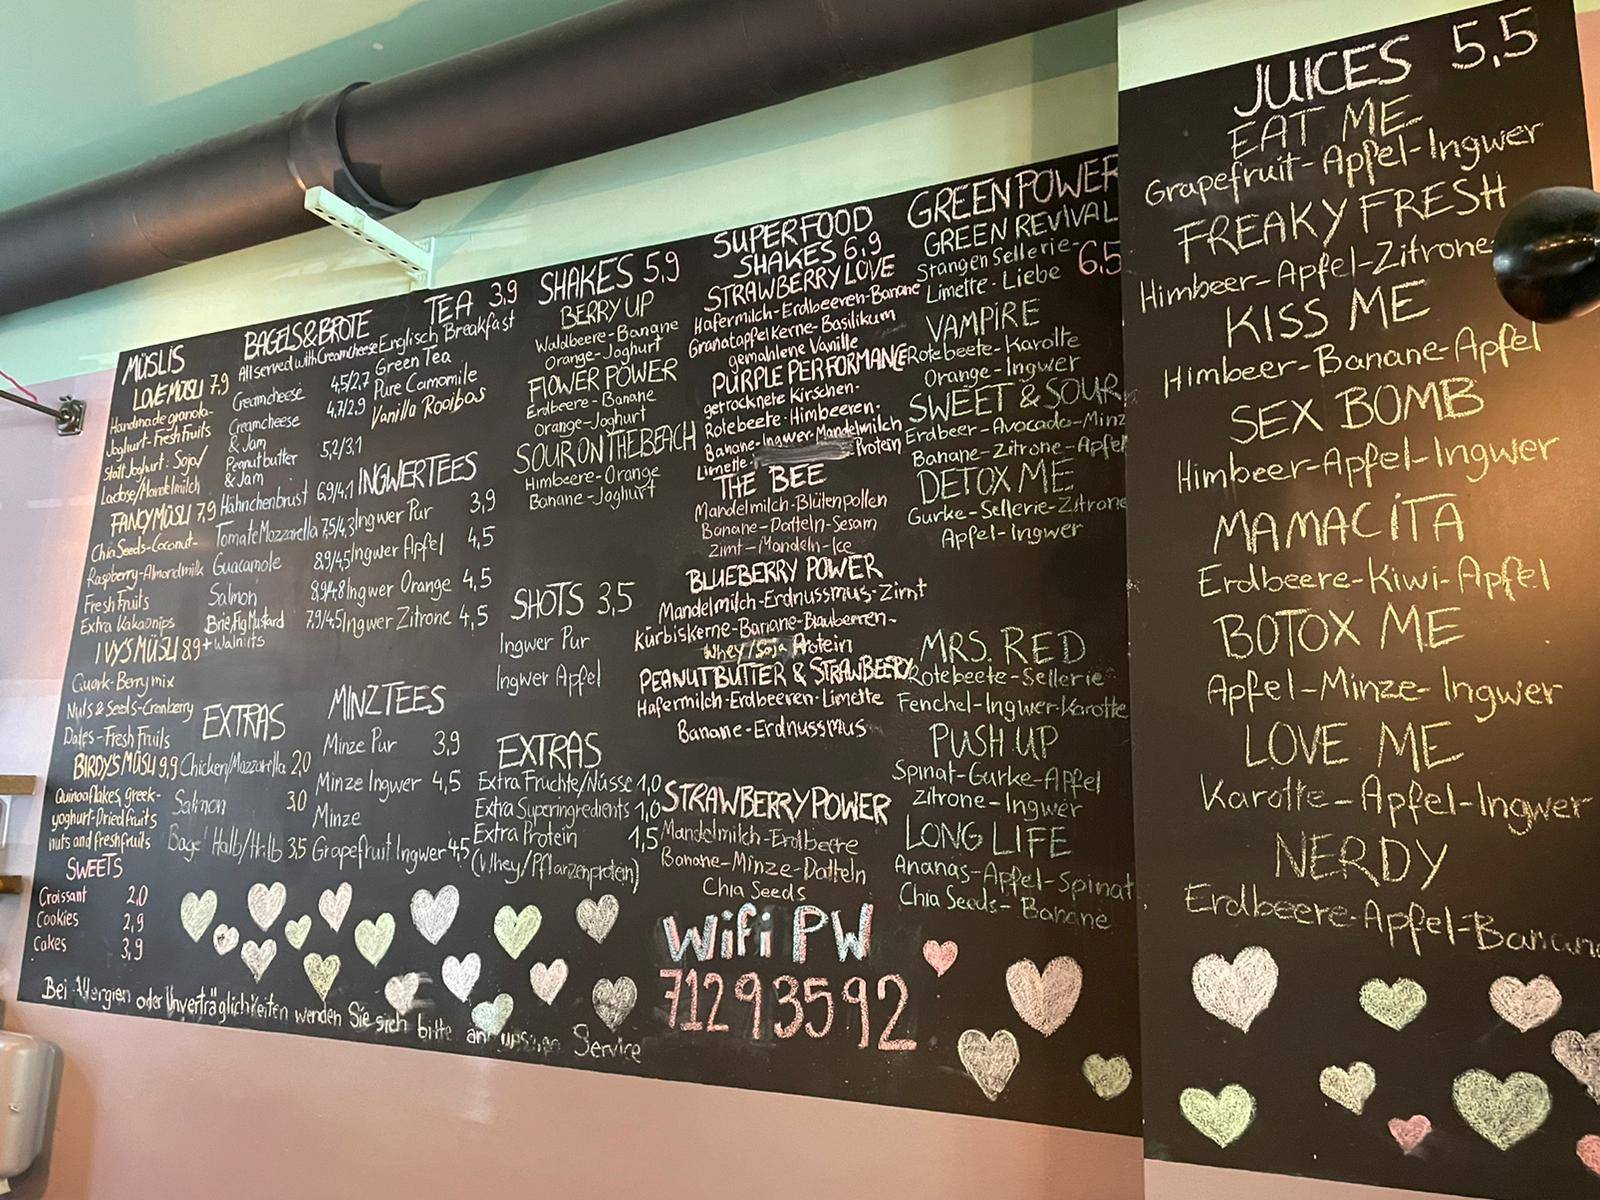 MÜSLIS
LOVE MÜSLI 7,9
Handmade granola-
Joghurt-Fresh Fruits
Statt Joghurt: Soja/
Lactose/Mandelmilch
FANCY MÜSLI 7,9
Chia Seeds-Coconut-
Raspberry-Almondmilk
Fresh Fruits
Extra Kakaonips
IVYS MÜSLI 8,9
Quark-Berrymix
Nuts & Seeds-Cranberry
Dates-Fresh Fruits
BIRDY'S MÜSLI 9,9
Quinoaflakes, greek-
yoghurt-Dried fruits
nuts and freshfruits
SWEETS
Croissant 2,0
Cookies 2,9
Cakes 3,9
BAGELS & BROTE
All served with Creamcheese
Creamcheese 4,5/2,7
Creamcheese 4,7/2,9
& Jam
Peanutbutter 5,2/3,1
& Jam
Hähnchenbrust 6,9/4,1
Tomate Mozzarella 7,5/4,3
Guacamole 8,9/4,5
Salmon 8,9/4,8
Brie, Fig Mustard 7,9/4,5
+ walnuts
EXTRAS
Chicken/Mozzarella 2,0
Salmon 3,0
Bagel Halb/Halb 3,5
TEA 3,9
Englisch Breakfast
Green Tea
Pure Camomile
Vanilla Rooibos
INGWERTEES
Ingwer Pur 3,9
Ingwer Apfel 4,5
Ingwer Orange 4,5
Ingwer Zitrone 4,5
MINZTEES
Minze Pur 3,9
Minze Ingwer 4,5
Minze
Grapefruit Ingwer 4,5
SHAKES 5,9
BERRY UP
Waldbeere-Banane
Orange-Joghurt
FLOWER POWER
Erdbeere-Banane
Orange-Joghurt
SOUR ON THE BEACH
Himbeere-Orange
Banane-Joghurt
SHOTS 3,5
Ingwer Pur
Ingwer Apfel
EXTRAS
Extra Früchte/Nüsse 1,0
Extra Superingredients 1,0
Extra Protein 1,5
(Whey/Pflanzenprotein)
SUPERFOOD
SHAKES 6,9
STRAWBERRY LOVE
Hafermilch-Erdbeeren-Banane
Granatapfelkerne-Basilikum
gemahlene Vanille
PURPLE PERFORMANCE
getrocknete Kirschen-
Rotebeete-Himbeeren-
Banane-Ingwer-Mandelmilch
Limette- Protein
THE BEE
Mandelmilch-Blütenpollen
Banane-Datteln-Sesam
Zimt-Mandeln-Ice
BLUEBERRY POWER
Mandelmilch-Erdnussmus-Zimt
Kürbiskerne-Banane-Blaubeeren-
Whey/Soja Protein
PEANUTBUTTER & STRAWBERRY
Hafermilch-Erdbeeren-Limette
Banane-Erdnussmus
STRAWBERRY POWER
Mandelmilch-Erdbeere
Banane-Minze-Datteln
Chia Seeds
Wifi PW
71293592
GREEN POWER
GREEN REVIVAL
Stangen Sellerie- 6,5
Limette-Liebe
VAMPIRE
Rotebeete-Karotte
Orange-Ingwer
SWEET & SOUR
Erdbeer-Avocado-Minz
Banane-Zitrone-Apfel
DETOX ME
Gurke-Sellerie-Zitrone
Apfel-Ingwer
MRS. RED
Rotebeete-Sellerie
Fenchel-Ingwer-Karotte
PUSH UP
Spinat-Gurke-Apfel
Zitrone-Ingwer
LONG LIFE
Ananas-Apfel-Spinat
Chia Seeds-Banane
Bei Allergien oder Unverträglichkeiten wenden Sie sich bitte an unseren Service
JUICES 5,5
EAT ME
Grapefruit-Apfel-Ingwer
FREAKY FRESH
Himbeer-Apfel-Zitrone
KISS ME
Himbeer-Banane-Apfel
SEX BOMB
Himbeer-Apfel-Ingwer
MAMACITA
Erdbeere-Kiwi-Apfel
BOTOX ME
Apfel-Minze-Ingwer
LOVE ME
Karotte-Apfel-Ingwer
NERDY
Erdbeere-Apfel-Banane